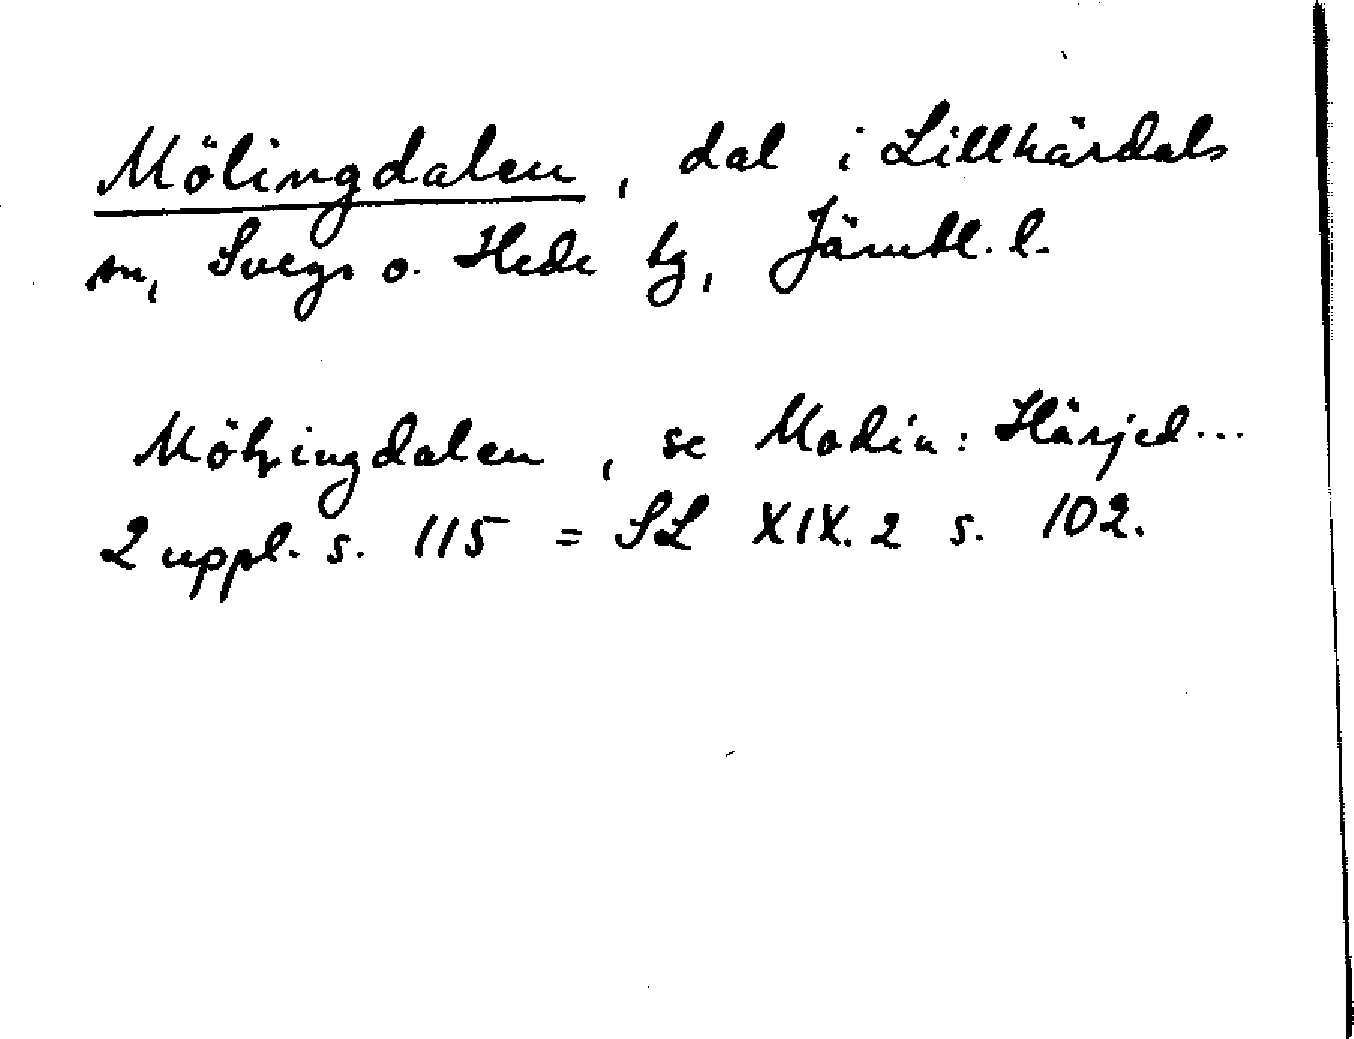 Mölingdalen, dal i Lillhärdals
sn, Svegs o. Hede tg, Jämtl. l.
Möhingdalen, se Modin: Härjed...
2 uppl. s. 115 = SL XIX.2 s. 102.